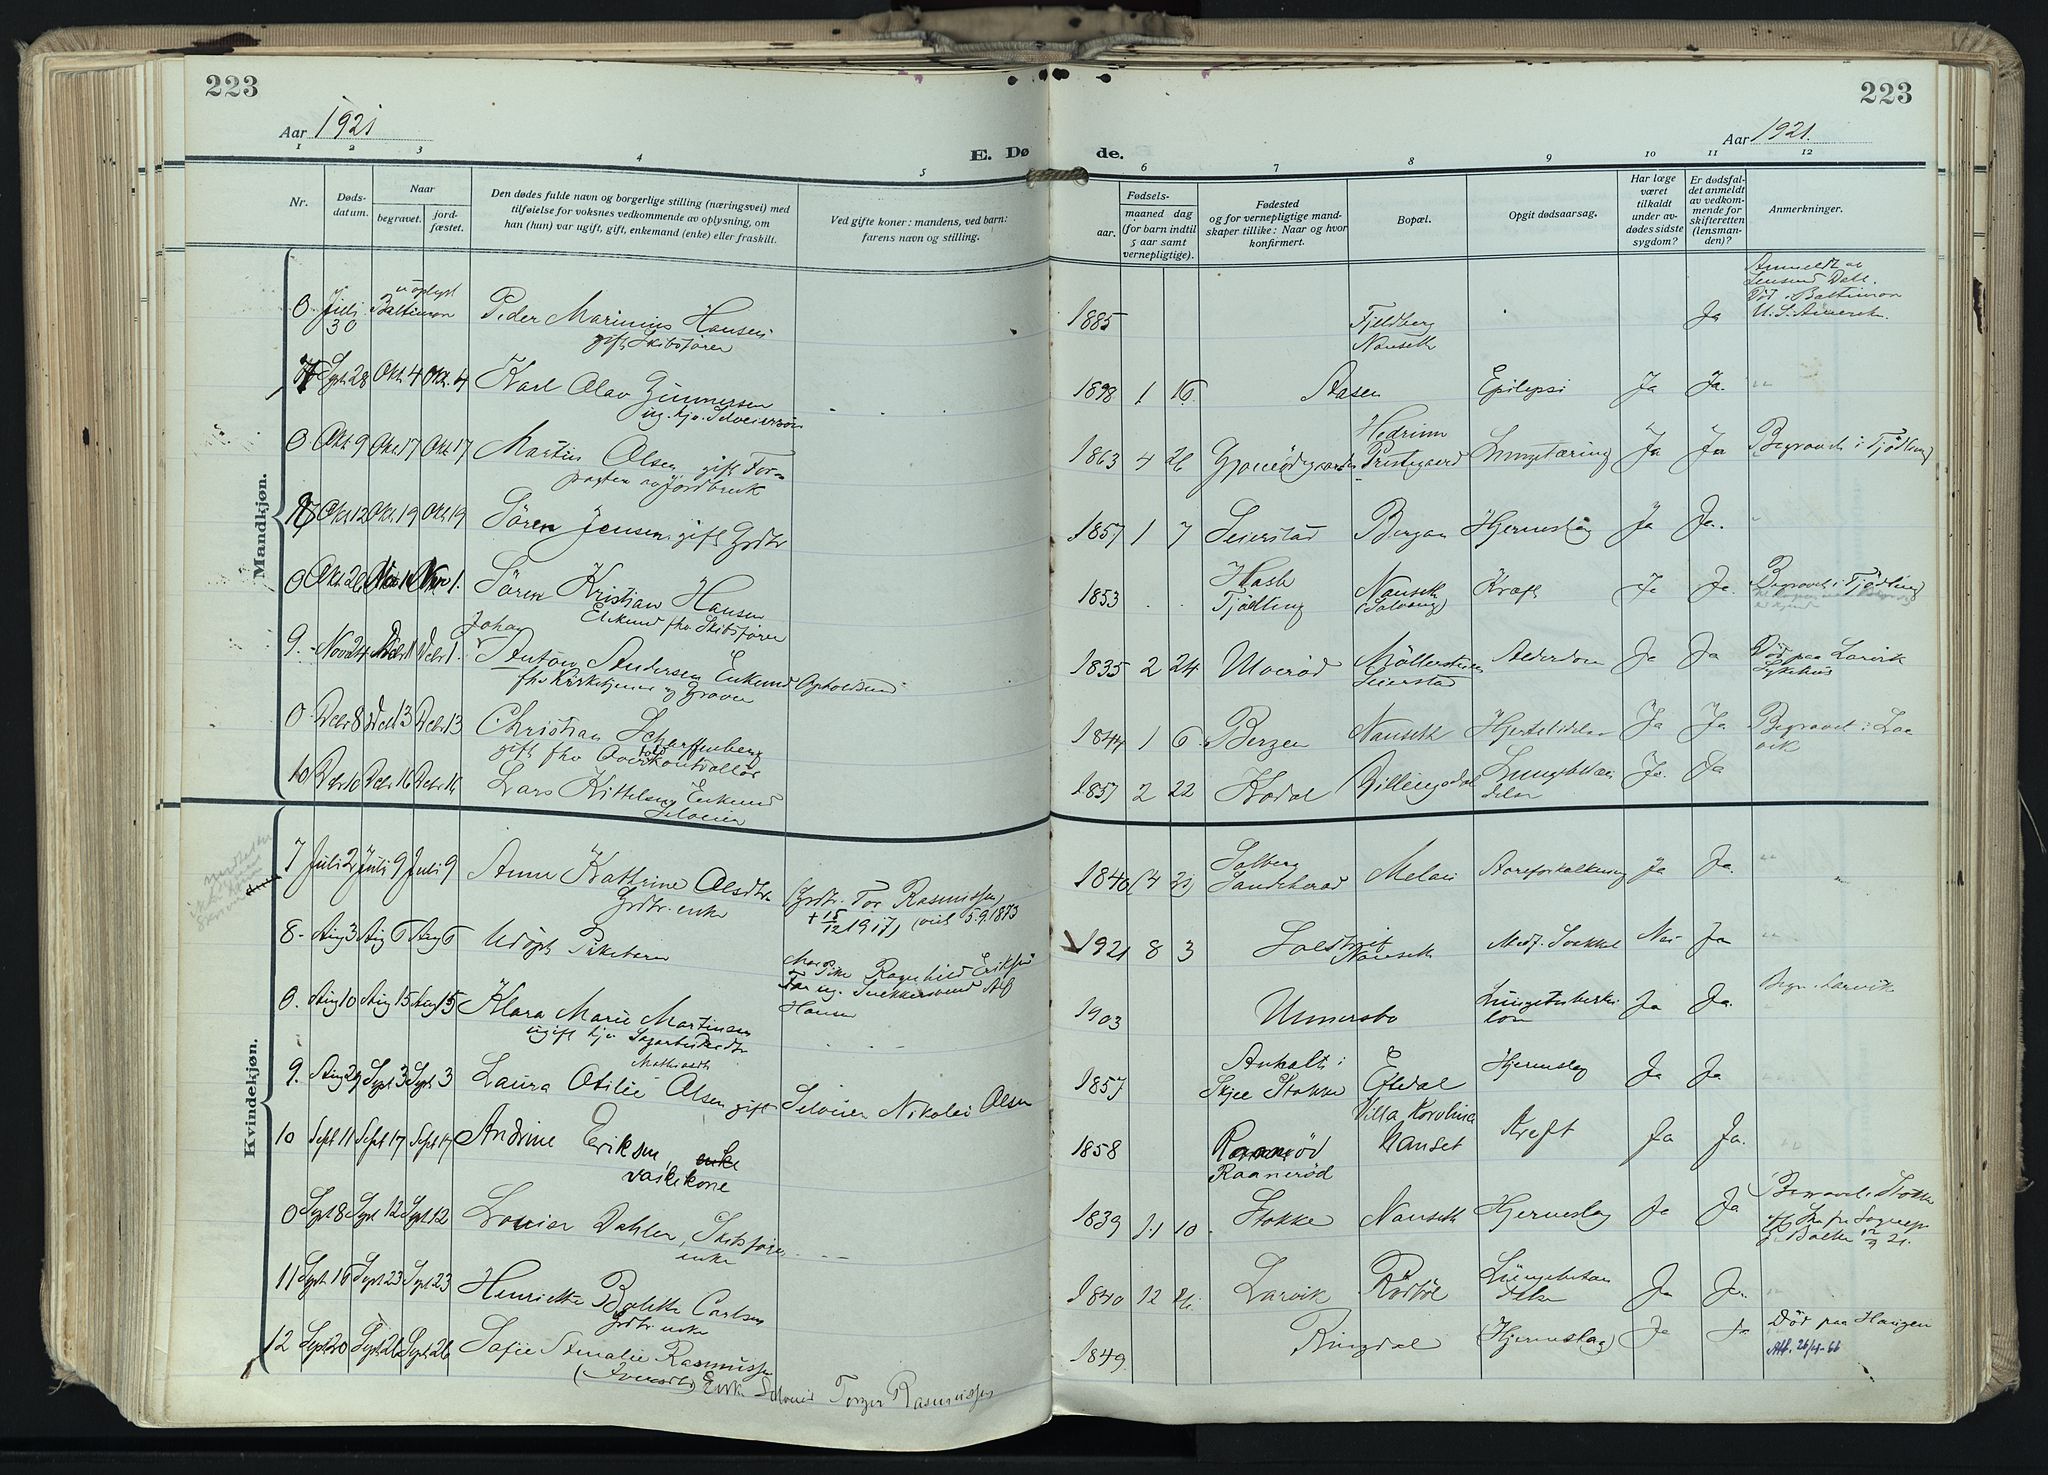 223
223
Aar 1921
Aar 1921.
E. Døde.
1 2 3 4 5 6 7 8 9 10 11 12
Nr.
Døds-
datum.
Naar
begravet.
jord-
fæstet.
Den dødes fulde navn og borgerlige stilling (næringsvei) med
tilføielse for voksnes vedkommende av oplysning, om
han (hun) var ugift, gift, enkemand (enke) eller fraskilt.
Ved gifte koner: mandens, ved barn:
farens navn og stilling.
Fødsels-
aar.
maaned dag
(for barn indtil
5 aar samt
vernepligtige).
Fødested
og for vernepligtige mand-
skaper tillike: Naar og hvor
konfirmert.
Bopæl.
Opgit dødsaarsag.
Har læge
været
tilkaldt
under av-
dødes sidste
sygdom?
Er dødsfal-
det anmeldt
av vedkom-
mende for
skifteretten
(lensman-
den)?
Anmerkninger.
Mandkjøn.
0. Juli 30 uoplyst Baltimor Peder Marinius Hansen 1885 Fjeldberg Ja Anmeldt av
gift Skibsfører Nanseth Lensmd Dahl. Død i Baltimor U. S. Amerik.
7 Sept 28 Okt. 4 Okt. 4 Karl Olav Gunnersen 1898 1 16 Aasen Epilepsi Ja Ja. "
ug. hjv. Selveiersøn
0 Okt. 9 Okt 17 Okt 17 Martin Olsen gift For- 1863 4 26 Hedrum Prestegaard Lungetæring Ja Ja Begravet i Tjødling
pagter av Jordbruk
8 Okt 12 Okt 19 Okt 19 Søren Jensen, gift Grdbr 1857 1 7 Seierstad Bergan Hjerneslag Ja Ja. "
0 Okt. 26 Nov 1. Søren Kristian Hansen 1853 . . Tjødling Nanseth (Solvang) Kræft Ja Ja Begravet i Tjødling
Enkemd fhv. Skibsfører
9. Nov 24 Decbr 1 Decbr 1. Johan Anton Andersen Enkemd Opholdsmd 1835 2 24 Ulverød Møllerstuen Seierstad Alderdom Ja Ja Død paa Larvik Sykehus
fhv Kirketjener og Graver
0 Decbr 8 Decbr 13 Decbr 13 Christian Scharffenberg 1844 1 6 Bergen Nanseth Hjertelidelse Ja Ja Begravet i Larvik
gift fhv Overtoldkontrollør
10 Decbr 10 Decbr 16 Decbr 16 Lars Kittelsen Enkemd 1857 2 22 Kodal Dillingsdal Ja. Ja
Selveier
Kvindekjøn.
7 Juli 2 Juli 9 Juli 9 Anne Kathrine Olsdtr. (Grdbr. Tor Rasmussen) 1840 (4 21) Solberg Sandeherad Melau Aareforkalkning Ja Ja. "
Grdbr. enke + 15/12 1917) (viet 5.9.1873
8- Aug 3 Aug 6 Aug 6 Udøpt Pikebarn Mor: Pike Ragnhild Eriksen 1921 8 3 Nanseth Medf. Svakhet Nei Ja "
Far ug. Snekkersvend Alf Hansen
0. Aug 10 Aug 15 Aug 15 Klara Marie Martinsen 1903 Unnersbo Lungetuberkulose Ja Ja. Begr. Larvik
ugift hjv Sagarbeiderdtr
9. Aug 29 Sept 3 Sept 3 Laura Otilie Mathiasdt Olsen gift Selveier Nikolai Olsen 1857 Skjee Stokke Eftedal Hjerneslag Ja Ja
10 Sept 11 Sept 17 Sept 17 Andrine Eriksen, enke 1858 Raanerød Villa Karolina Nanset Kreft Ja Ja. "
vaskekone Raanerød
0 Sept 8 Sept 12 Sept 12 Lovise Dahler, Skibsfører 1839 11 10 Stokke Nanseth Hjerneslag Ja Ja Begravet i Stokke
enke
11 Sept 16 Sept 23 Sept 23 Henriette Bolette Carlsen 1840 12 Larvik Rødbøl Ja Ja.
Grdbr. enke
12 Sept 20 Sept 26 Sept 26 Sofie Amalie Rasmussen 1849 Ringdal (Hjerneslag) Ja Ja Død paa Haugen
(Iversdtr) Enke Selveier Torger Rasmussen Att. 26/4-66